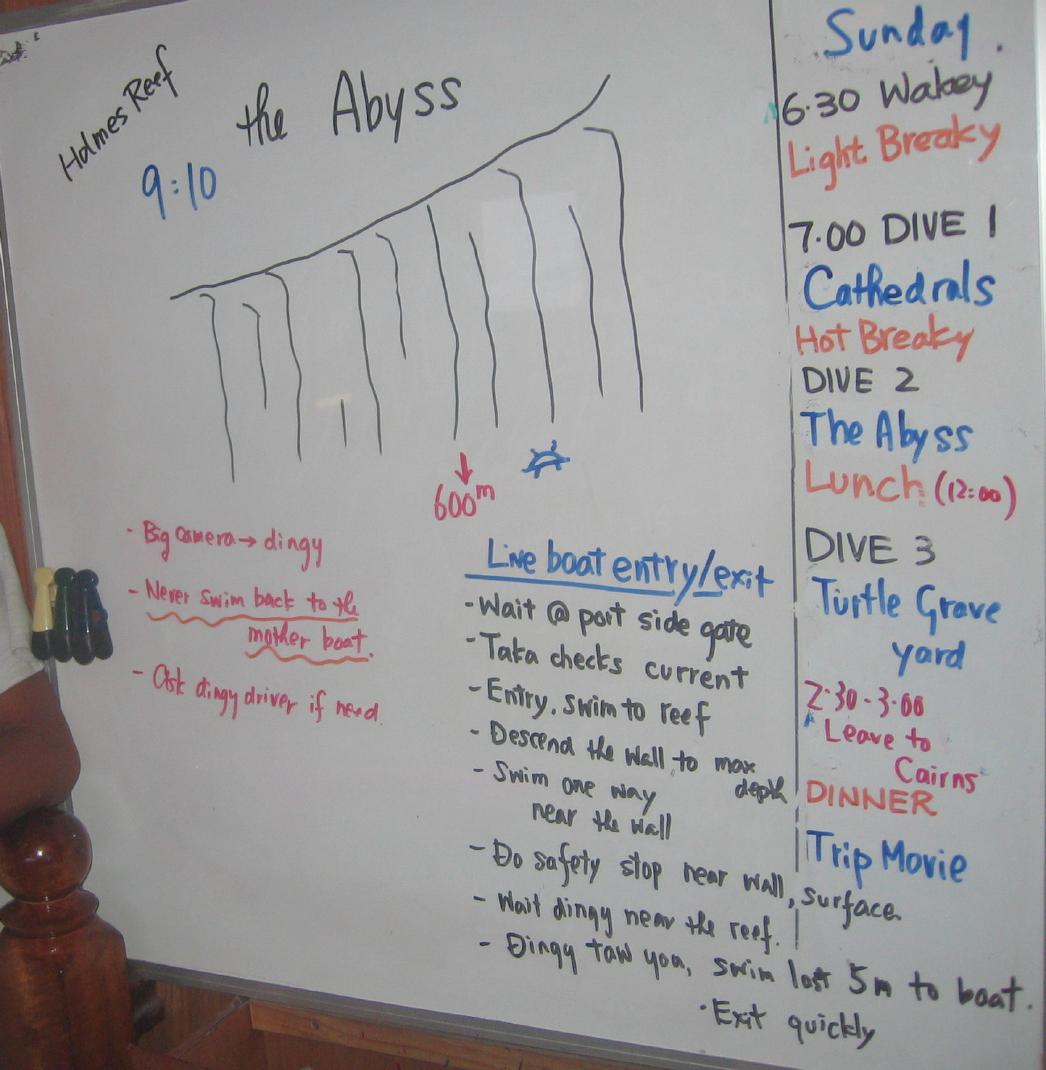 Holmes Reef
the Abyss
9:10
600m
- Big camera → dingy
- Never swim back to the
mother boat.
- Ask dingy driver if need.
Live boat entry/exit
- Wait @ port side gate
- Taka checks current
- Entry, swim to reef
- Descend the wall to max
depth
- Swim one way
near the wall
- Do safety stop near wall, surface.
- Wait dingy near the reef.
- Dingy taw you, swim last 5m to boat.
· Exit quickly
Sunday.
6.30 Wakey
Light Breaky
7.00 DIVE 1
Cathedrals
Hot Breaky
DIVE 2
The Abyss
Lunch (12:00)
DIVE 3
Turtle Grave
yard
2.30 - 3.00
Leave to
Cairns
DINNER
Trip Movie